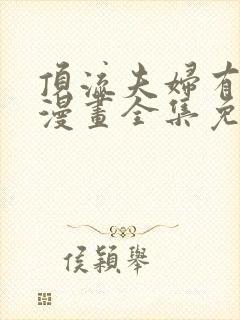 頂流夫婦有
漫畫全集免
侯穎舉